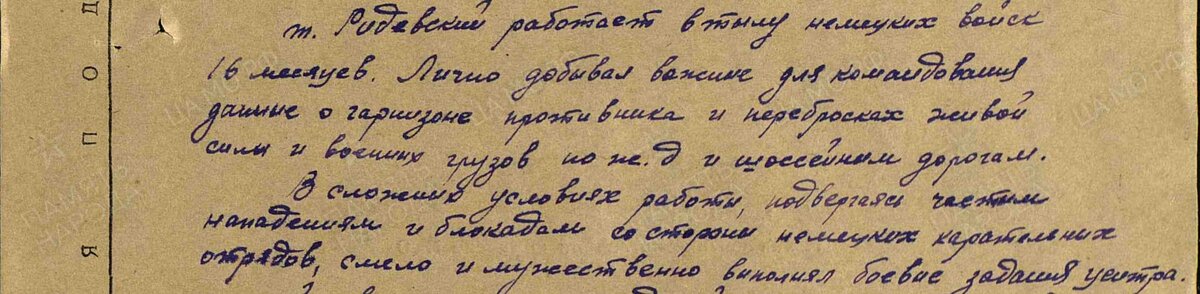 т. Радевский работает в тылу немецких войск
16 месяцев. Лично добывал важные для командования
данные о гарнизоне противника и перебросках живой
силы и военных грузов по ж.д и шоссейным дорогам.
В сложных условиях работы, подвергаясь частым
нападениям и блокадам со стороны немецких карательных
отрядов, смело и мужественно выполнял боевые задания центра.
Я П О Д